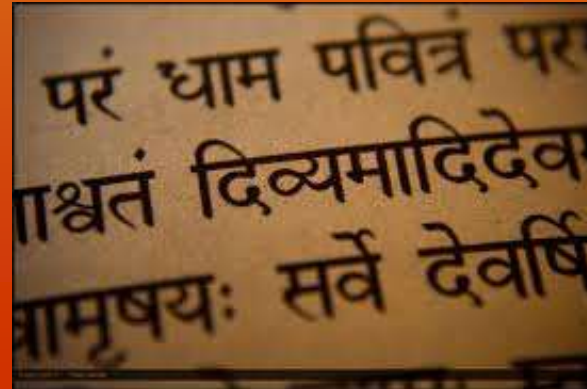 परं धाम पवित्रं पर
ाश्वतं दिव्यमादिदेव
वामृषयः सर्वे देवर्षि